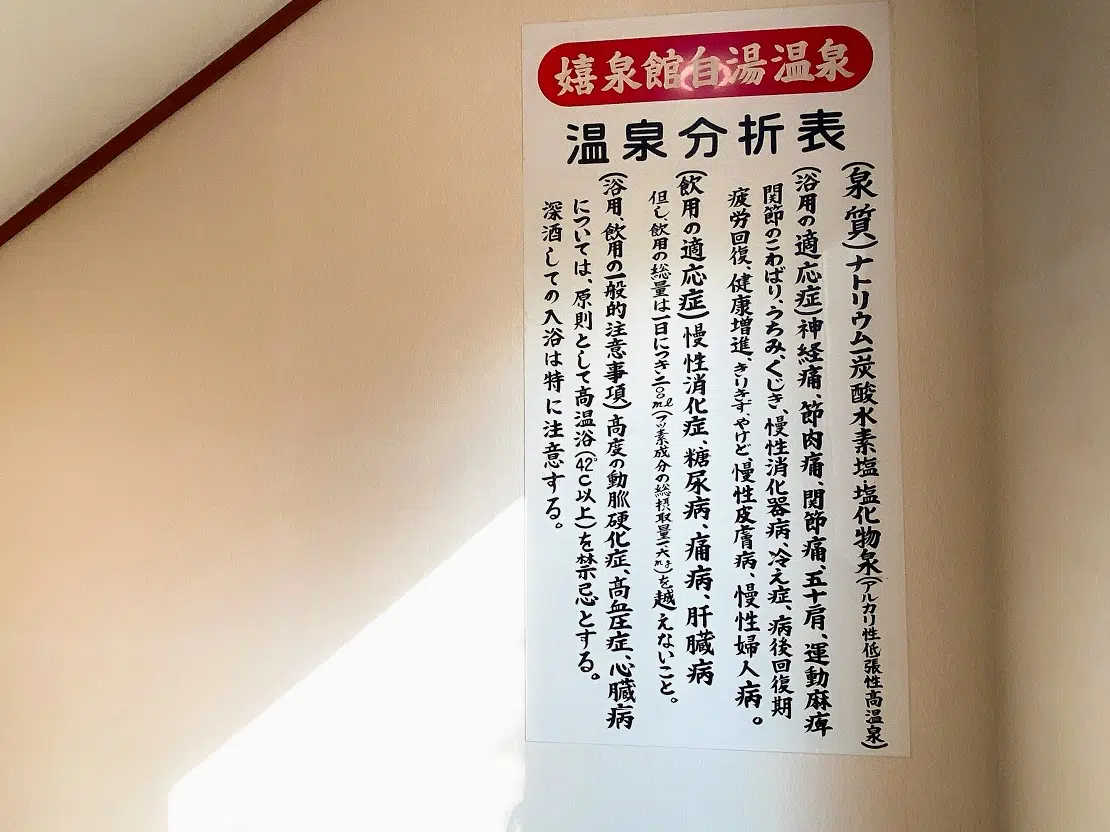 嬉泉館自湯温泉
温泉分折表
(泉質)ナトリウム―炭酸水素塩・塩化物泉(アルカリ性低張性高温泉)
(浴用の適応症)神経痛、節肉痛、関節痛、五十肩、運動麻痺
関節のこわばり、うちみ、くじき、慢性消化器病、冷え症、病後回復期
疲労回復、健康増進、きりきず、やけど、慢性皮膚病、慢性婦人病。
(飲用の適応症)慢性消化症、糖尿病、痛病、肝臓病
但し、飲用の総量は一日につき二〇〇ml(フッ素成分の総摂取量一・六mg)を越えないこと。
(浴用、飲用の一般的注意事項)高度の動脈硬化症、高血圧症、心臓病
については、原則として高温浴(42℃以上)を禁忌とする。
深酒しての入浴は特に注意する。